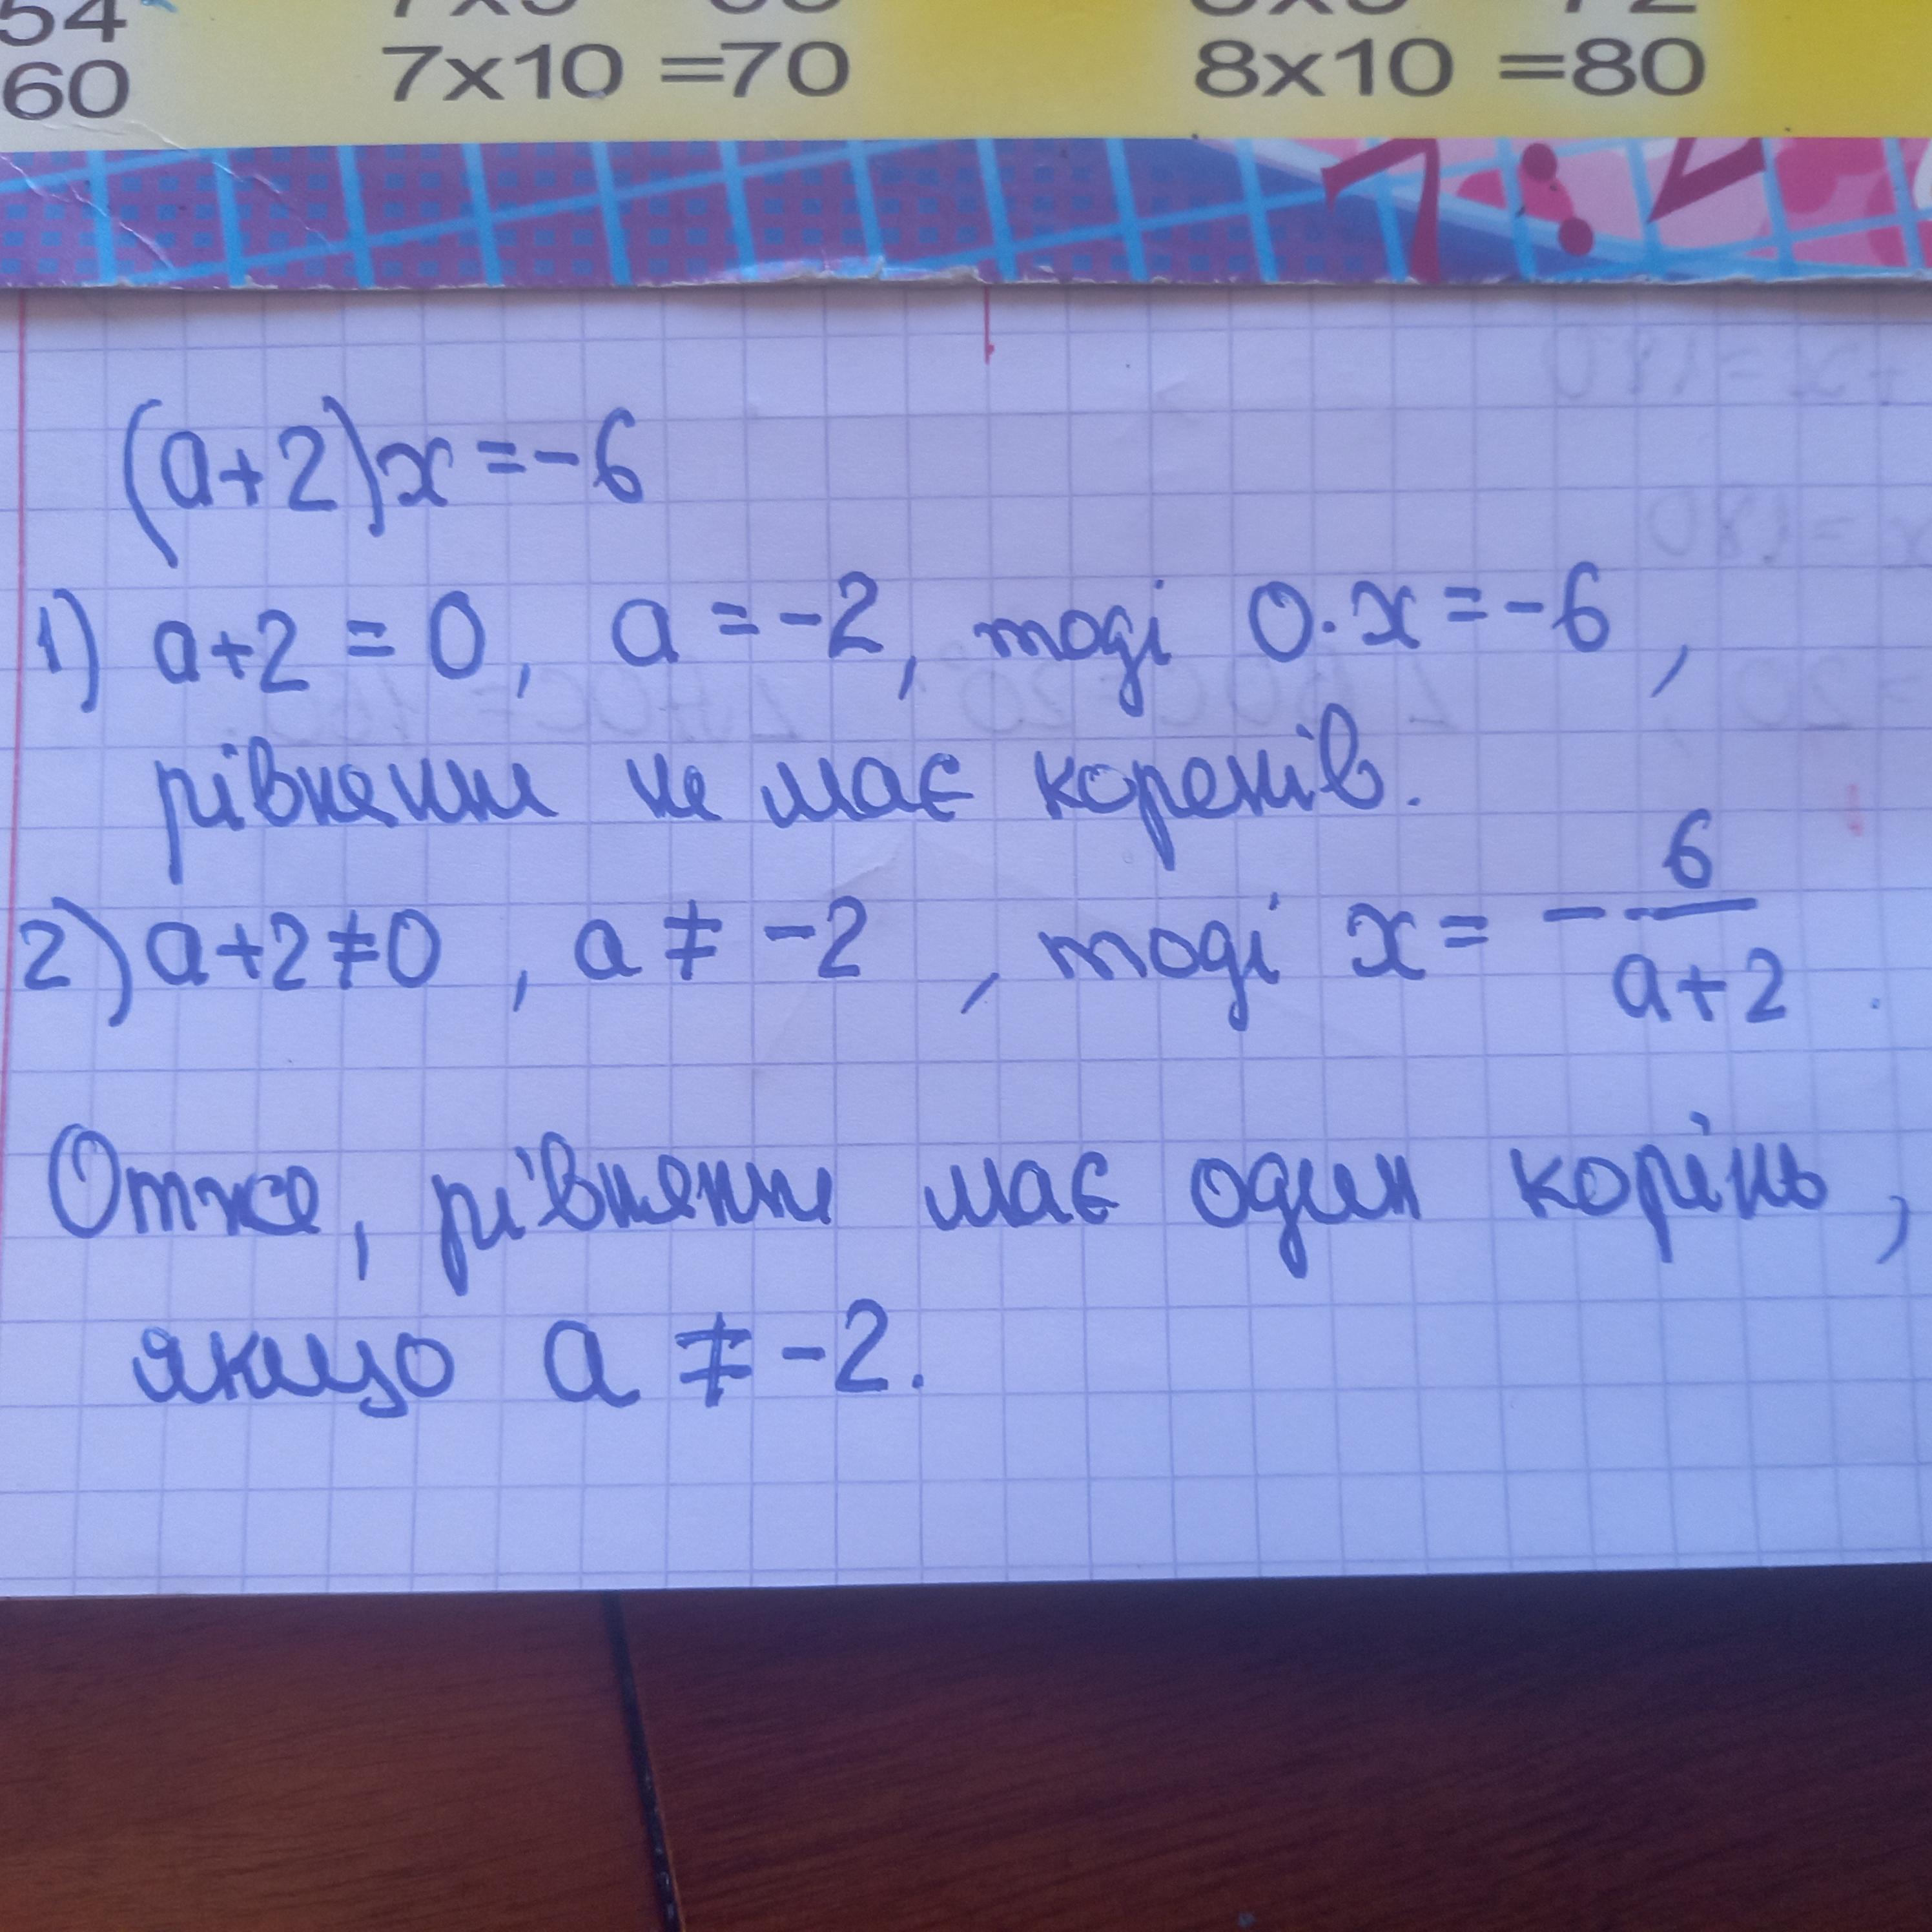 54
60
7x10 =70
8x10 =80
(a+2)x=-6
1) a+2=0, a=-2, тоді 0·x=-6,
рівняння не має коренів.
2) a+2≠0, a≠-2, тоді x= -6/(a+2).
Отже, рівняння має один корінь,
якщо a≠-2.